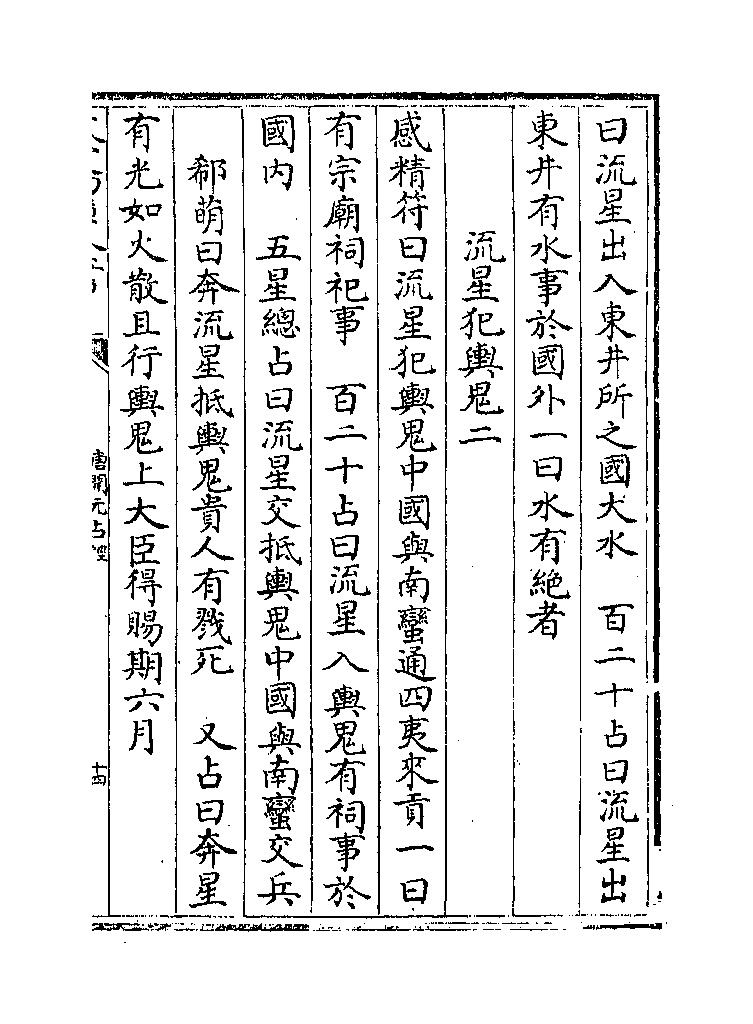 曰流星出入東井所之國大水　百二十占曰流星出
東井有水事於國外一曰水有絶者
流星犯輿鬼二
感精符曰流星犯輿鬼中國與南蠻通四夷來貢一曰
有宗廟祠祀事　百二十占曰流星入輿鬼有祠事於
國内　五星總占曰流星交抵輿鬼中國與南蠻交兵
郗萌曰奔流星抵輿鬼貴人有戮死　又占曰奔星
有光如火散且行輿鬼上大臣得賜期六月
唐開元占經
十四